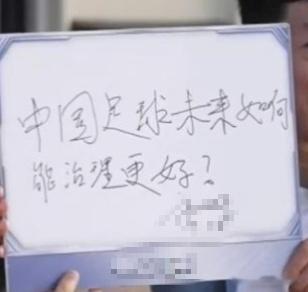 中国足球未来如何
能治理更好？